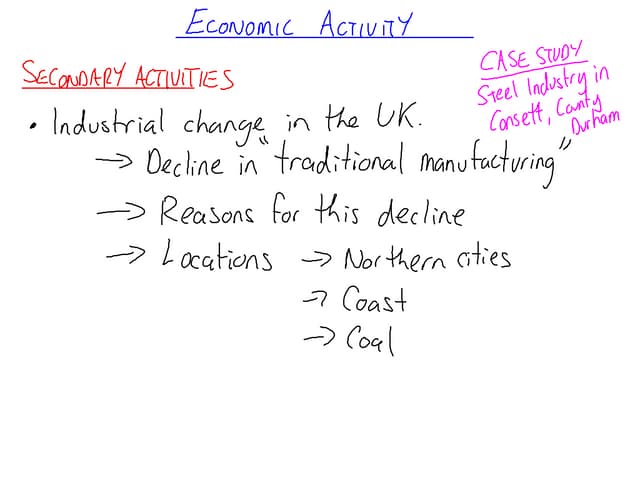 ECONOMIC ACTIVITY
CASE STUDY
Steel Industry in
Consett, County
Durham
SECONDARY ACTIVITIES
• Industrial change in the UK.
→ Decline in "traditional manufacturing"
→ Reasons for this decline
→ Locations → Northern cities
→ Coast
→ Coal